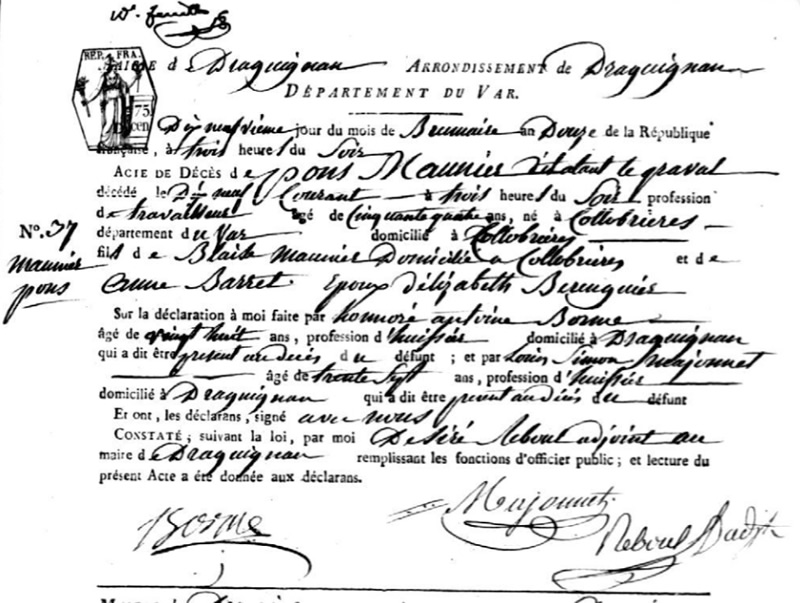 10e. feuille
REP. FRA.
75.
CEN
MAIRIE de Draguignan ARRONDISSEMENT de Draguignan
DÉPARTEMENT DU VAR.
Dix neuvieme jour du mois de Brumaire an Douze de la République
française, à trois heures du Soir
ACTE DE DÉCÈS de pons Maunier
décédé le Dix neuf Courant à trois heures du Soir profession
de travailleur âgé de Cinquante quatre ans, né à Collobrières
No. 37
département du Var domicilié à Collobrières
maunier
pons
fils de Blaise maunier Domicilié a Collobrières et de
anne Barret Epoux d'élizabeth Berenguier
Sur la déclaration à moi faite par honnoré antoine Borme
âgé de vingt huit ans, profession d'huissier domicilié à Draguignan
qui a dit être present au décès du défunt; et par Louis Simon Majonnet
âgé de trente Sept ans, profession d'huissier
domicilié à Draguignan qui a dit être present au décès du défunt
Et ont, les déclarans, signé avec nous
CONSTATÉ; suivant la loi, par moi Desiré Reboul adjoint au
maire de Draguignan remplissant les fonctions d'officier public; et lecture du
présent Acte a été donnée aux déclarans.
Borme
Majonnet
Reboul adjt